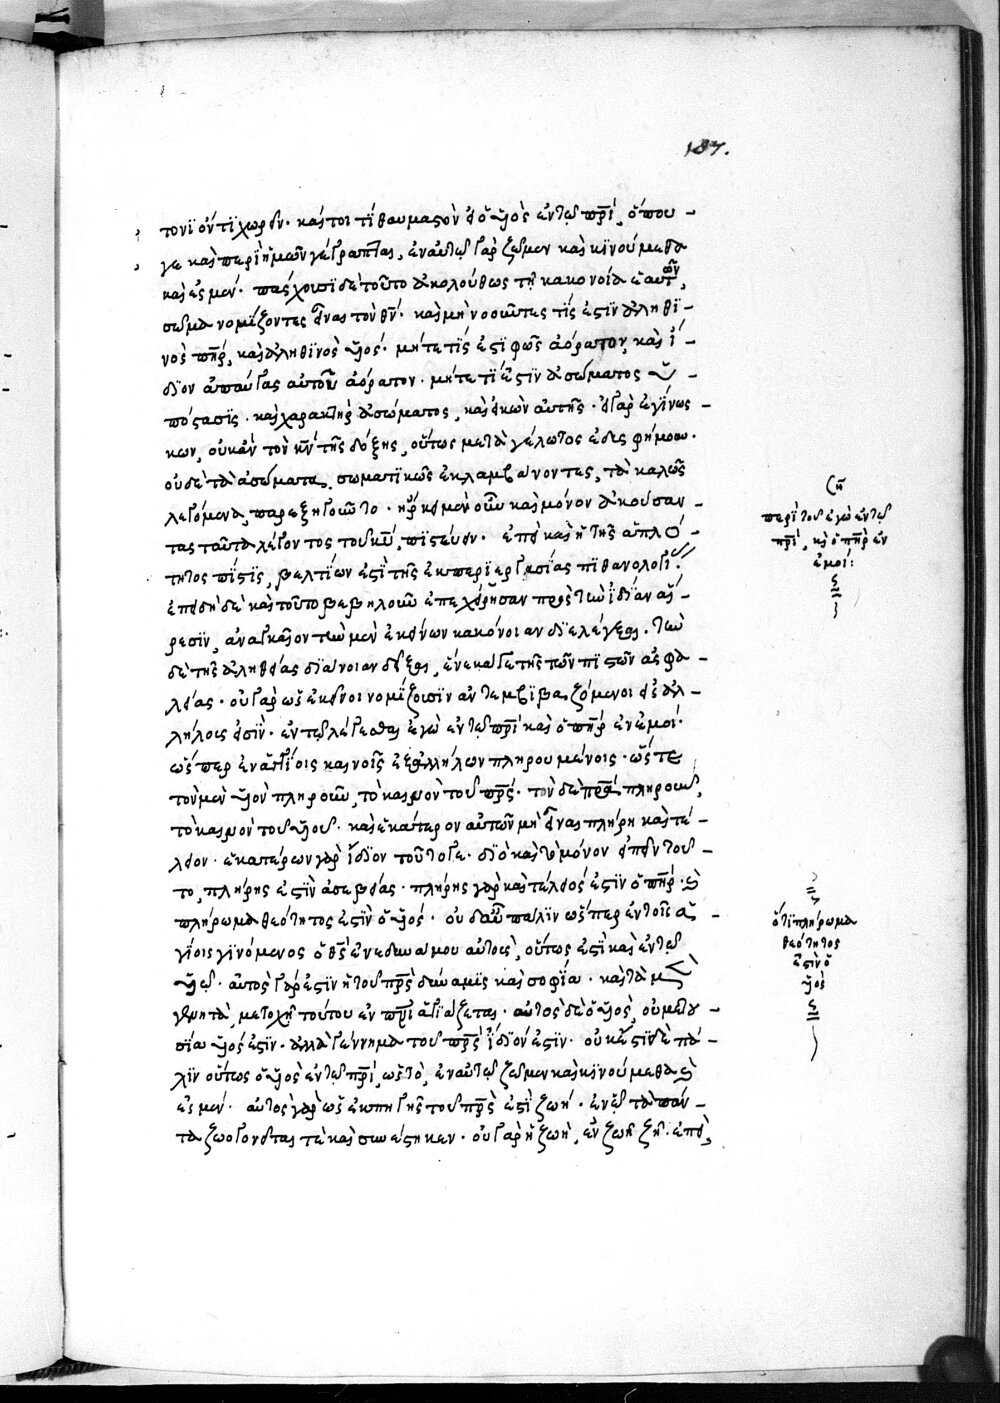 187.
τονϊ όντϊ χωρεῖν· καί τοι τί θαυμαςὸν εἰ ὁ ὑϊὸς ἐν τῷ πρ̅ΐ, ὅπου -
γε καὶ περὶ ἡμῶν γέγραπται, ἐν αὐτῷ γὰρ ζῶμεν καὶ κϊνούμεθα
καὶ ἐσμέν· πάσχουσϊ δὲ τοῦτο ἀκολούθως τῇ κακονοίᾳ ἑαυτῶν,
σῶμα νομίζοντες εἶναι τὸν θν̅· καὶ μὴ νοοῦντες τίς ἐςϊν ἀληθϊ -
νὸς πη̅ρ, καὶ ἀληθϊνὸς ὑϊός· μήτε τίς ἐςϊ φῶς ἀόρατον, καὶ ἀΐ -
δϊον ἀπαύγας αὐτοῦ ἀόρατον· μήτε τί ἐςϊν ἀσώματος ὑ -
πόςασϊς· καὶ χαρακτὴρ ἀσώματος, καὶ εἰκὼν αὐτῆς· εἰ γὰρ ἐγίνως -
κων, οὐκ ἂν τὸν κν̅ τῆς δόξης, οὕτως μετὰ γέλωτος ἐδυσφήμουν·
οὐδὲ τὰ ἀσώματα, σωματϊκῶς ἐκλαμβάνοντες, τὰ καλῶς
λεγόμενα, παρεξηγοῦντο· ἤρκει μὲν οὖν καὶ μόνον ἀκούσαν -
τας ταῦτα λέγοντος τοῦ κυ̅, πϊςεύειν· ἐπεὶ καὶ ἡ τῆς ἁπλό -
τητος πίςϊς, βελτίων ἐςὶ τῆς ἐκ περϊεργασίας πϊθανολογί·
ἐπειδὴ δὲ καὶ τοῦτο βεβηλοῦν ἐπεχείρησαν πρὸς τὴν ἰδίαν αἵ -
ρεσϊν, ἀναγκαῖον τὴν μὲν ἐκείνων κακόνοιαν δϊελέγξαι· τὴν
δὲ τῆς ἀληθείας δϊάνοιαν δεῖξαι, ἕνεκα γε τῆς τῶν πϊςῶν ἀσφα -
λείας· οὐ γὰρ ὡς ἐκεῖνοι νομίζουσϊν ἀντεμβϊβαζόμενοι εἰς ἀλ -
λήλους εἰσίν· ἐν τῷ λέγεσθαι ἐγὼ ἐν τῷ πρ̅ϊ καὶ ὁ πη̅ρ ἐν ἐμοί·
ὥσπερ ἐν ἀγγείοις κενοῖς ἐξ ἀλλήλων πληρουμένοις· ὥστε
τὸν μὲν ὑϊὸν πληροῦν, τὸ κενὸν τοῦ πρ̅ς· τὸν δὲ πρ̅α πληροῦν,
τὸ κενὸν τοῦ ὑϊοῦ· καὶ ἑκάτερον αὐτῶν μὴ εἶναι πλήρη καὶ τέ -
λειον· ἑκατέρων γὰρ ἴδϊον τοῦτό γε· δϊὸ καὶ τὸ μόνον εἰπεῖν τοῦ -
το, πλήρης ἐςὶν ἀσεβείας· πλήρης γὰρ καὶ τέλειός ἐςϊν ὁ πη̅ρ· καὶ
πλήρωμα θεότητος ἐςϊν ὁ ὑϊός· οὐ δ' αὖ πάλϊν ὥσπερ ἐν τοῖς ἁ -
γίοις γϊνόμενος ὁ θς̅ ἐνεδυνάμου αὐτοὺς, οὕτως ἐςὶ καὶ ἐν τῷ
ὑϊῷ· αὐτὸς γάρ ἐςϊν ἡ τοῦ πρ̅ς δύναμϊς καὶ σοφία· καὶ τὰ μὲν
γεννητὰ, μετοχῇ τούτου ἐν πν̅ϊ ἁγϊάζεται· αὐτὸς δὲ ὁ ὑϊὸς, οὐ μετου -
σίᾳ ὑϊός ἐςϊν· ἀλλὰ γέννημα τοῦ πρ̅ς ἴδϊόν ἐςϊν· οὐκ ἔςϊν δὲ πά -
λϊν οὕτως ὁ ὑϊὸς ἐν τῷ πρ̅ϊ, ὡς τὸ, ἐν αὐτῷ ζῶμεν καὶ κϊνούμεθα καὶ
ἐσμέν· αὐτὸς γὰρ ὡς ἐκ πηγῆς τοῦ πρ̅ς ἐςὶ ζωή· ἐν ᾧ τὰ πάν -
τα ζωογονεῖται τὲ καὶ συνέςηκεν· οὐ γὰρ ἡ ζωὴ, ἐν ζωῇ ζῇ· ἐπεὶ,
ση
περὶ τοῦ ἐγὼ ἐν τῷ
πρ̅ϊ, καὶ ὁ πη̅ρ ἐν
ἐμοί:
ὅτϊ πλήρωμα
θεότητος
ἐςϊν ὁ
ὑϊὸς